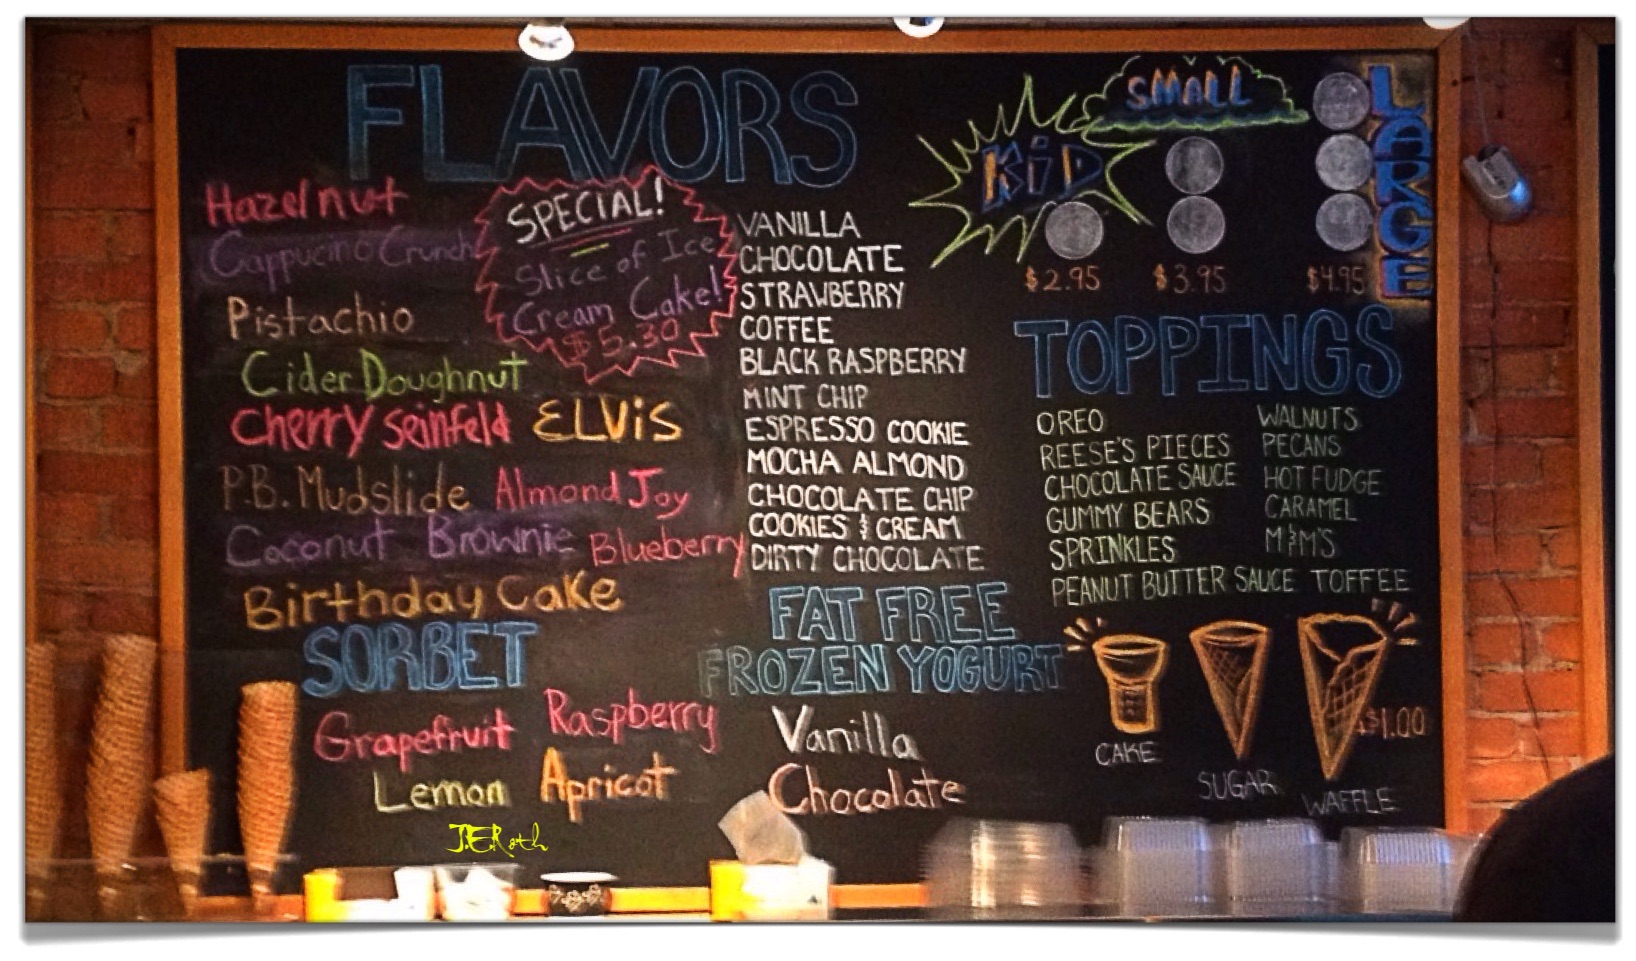 FLAVORS
Hazelnut
Cappucino Crunch
Pistachio
Cider Doughnut
Cherry Seinfeld ELViS
P.B. Mudslide Almond Joy
Coconut Brownie Blueberry
Birthday Cake
SPECIAL!
Slice of Ice
Cream Cake!
$5.30
VANILLA
CHOCOLATE
STRAWBERRY
COFFEE
BLACK RASPBERRY
MINT CHIP
ESPRESSO COOKIE
MOCHA ALMOND
CHOCOLATE CHIP
COOKIES & CREAM
DIRTY CHOCOLATE
KiD
SMALL
LARGE
$2.95 $3.95 $4.95
TOPPINGS
OREO
REESE'S PIECES
CHOCOLATE SAUCE
GUMMY BEARS
SPRINKLES
PEANUT BUTTER SAUCE
WALNUTS
PECANS
HOT FUDGE
CARAMEL
M&M'S
TOFFEE
SORBET
Grapefruit Raspberry
Lemon Apricot
FAT FREE
FROZEN YOGURT
Vanilla
Chocolate
$1.00
CAKE
SUGAR
WAFFLE
J.E.Roth